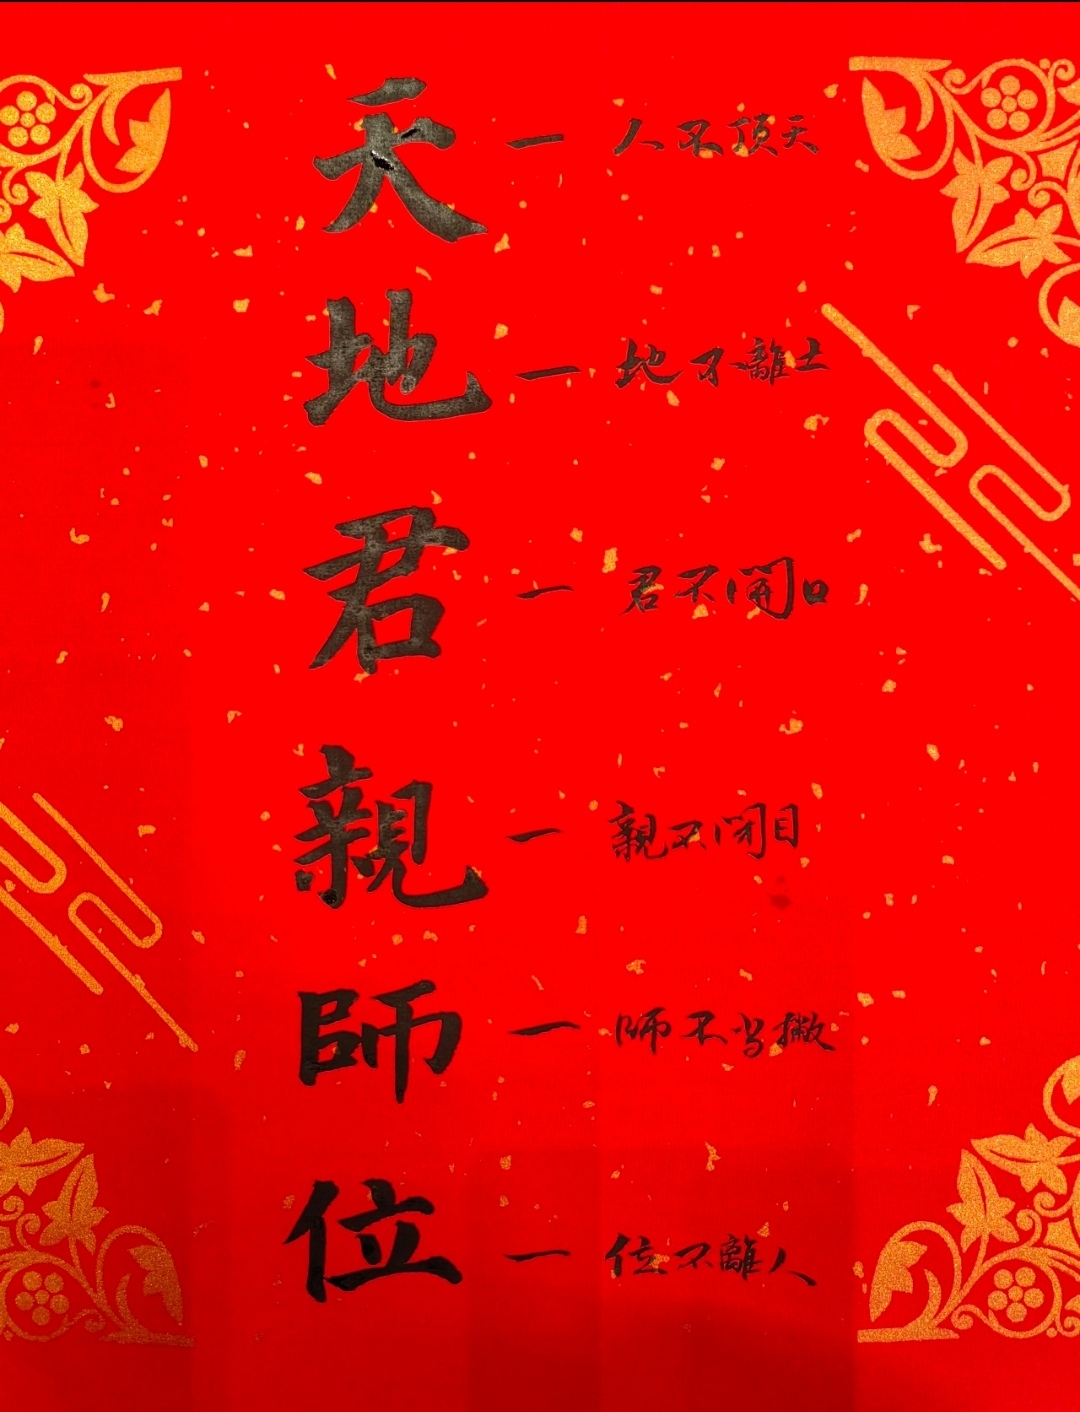 天 一 人不頂天
地 一 地不離土
君 一 君不開口
親 一 親不閉目
師 一 師不当撇
位 一 位不離人